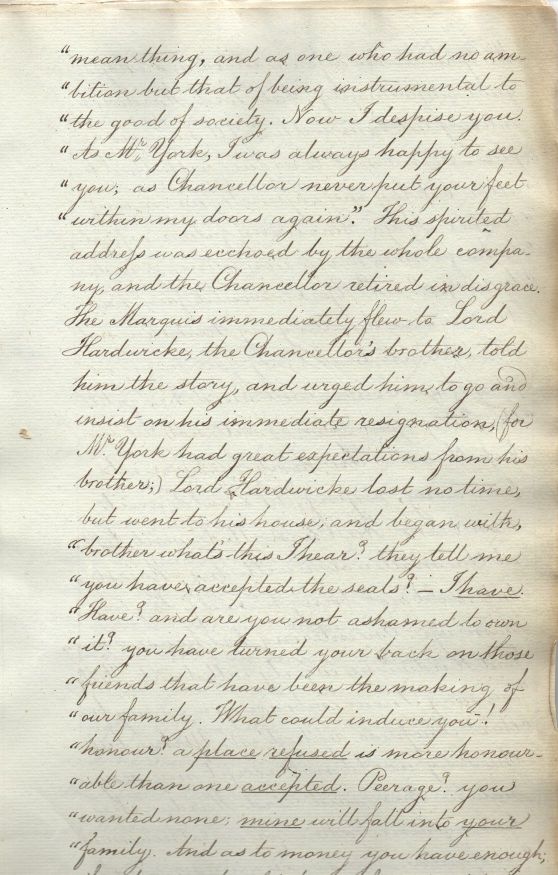 "mean thing, and as one who had no am-
"bition but that of being instrumental to
"the good of society. Now I despise you.
"As Mr. York, I was always happy to see
"you; as Chancellor never put your feet
"within my doors again". This spirited
address was ecchoed by the whole compa-
ny, and the Chancellor retired in disgrace.
The Marquis immediately flew to Lord
Hardwicke, the Chancellor's brother, told
him the story, and urged him to go and
insist on his immediate resignation, (for
Mr. York had great expectations from his
brother;) Lord Hardwicke lost no time,
but went to his house, and began with,
"brother what's this I hear? they tell me
"you have accepted the seals? – I have.
"Have? and are you not ashamed to own
"it? you have turned your back on those
"friends that have been the making of
"our family. What could induce you!
"honour? a place refused is more honour-
"able than one accepted. Peerage? you
"wanted none; mine will fall into your
"family. And as to money you have enough;